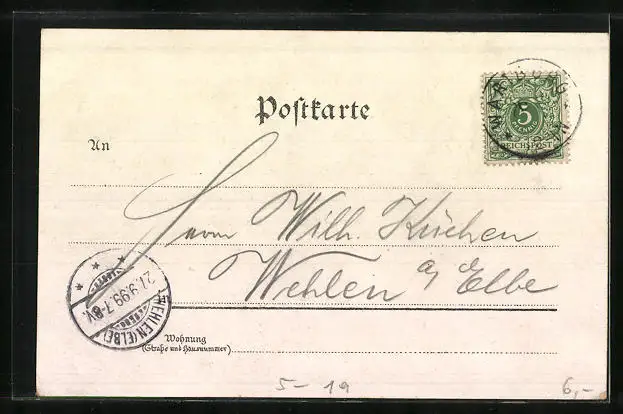 Postkarte
5
PFENNIG
REICHSPOST
An
Herrn Wilh. Küchen
Wehlen a/d Elbe
27.9.99.7-8V.
WEHLEN (ELBE)
Wohnung
(Straße und Hausnummer)
5-19
6,-